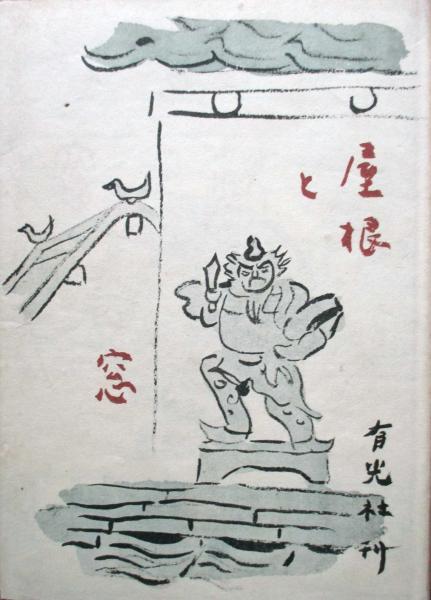 屋根
と
窓
有光社刊